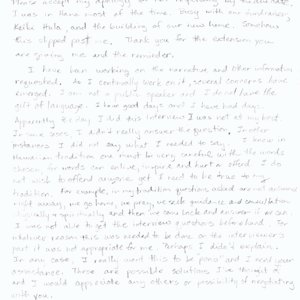 Please accept my apology by
I was in Hana most of the time. busy with my
Keiki Hula, and the building of our new home. Somehow
this slipped past me, Thank you for the extension you
are giving me and the reminder.
I have been working on the narrative and other information
requested. As I continually work on it, several concerns have
emerged. I am not a public speaker and I do not have the
gift of language. I have good days and I have bad days.
Apparently the day I did this interview I was not at my best.
In some cases I didn't really answer the question. In other
instances I did not say what I needed to say. I know in
Hawaiian tradition one must be very careful w/ the words
chosen, for words can enliven, inspire & hurt & offend. I do
not wish to offend anyone yet I need to be true to my
tradition. For example, in my tradition questions asked are not answered
right away, we go home, we pray, we seek guidance and consultation
physically & spiritually and then we come back and answer if we can.
I was not able to get the interview questions beforehand. For
whatever reason this was needed to be done on the interviewer's
part it was not appropriate for me. Perhaps I didn't explain.
In any case, I really want this to be "pono" and I need your
assistance. There are possible solutions I've thought of
and I would appreciate any others or possibility of negotiating
with you.